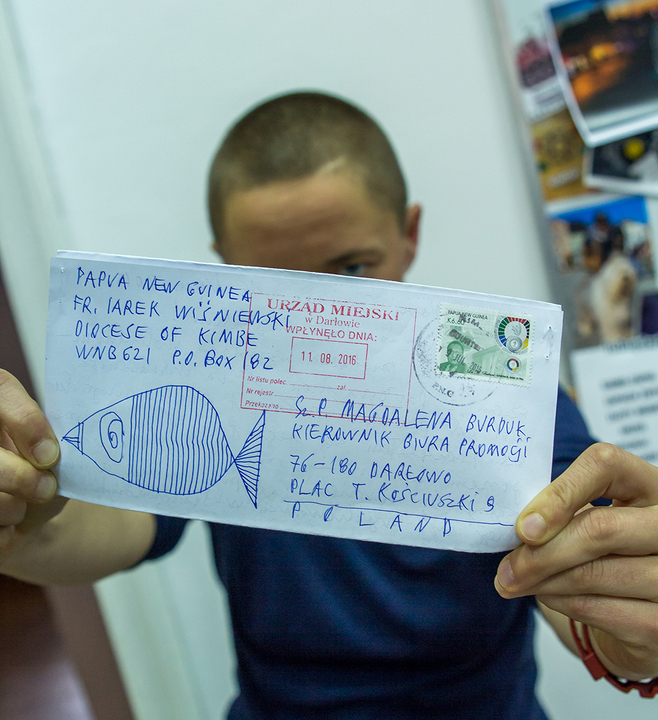 PAPUA NEW GUINEA
FR. IAREK WIŚNIEWSKI
DIOCESE OF KIMBE
WNB 621 P.O. BOX 182
URZĄD MIEJSKI
w Darłowie
WPŁYNĘŁO DNIA:
11. 08. 2016
Nr listu polec. zał.
Nr rejestr.
Przekazano
PAPUA NEW GUINEA
Sz. P. MAGDALENA BURDUK
KIEROWNIK BIURA PROMOCJI
76-180 DARŁOWO
PLAC T. KOŚCIUSZKI 9
POLAND